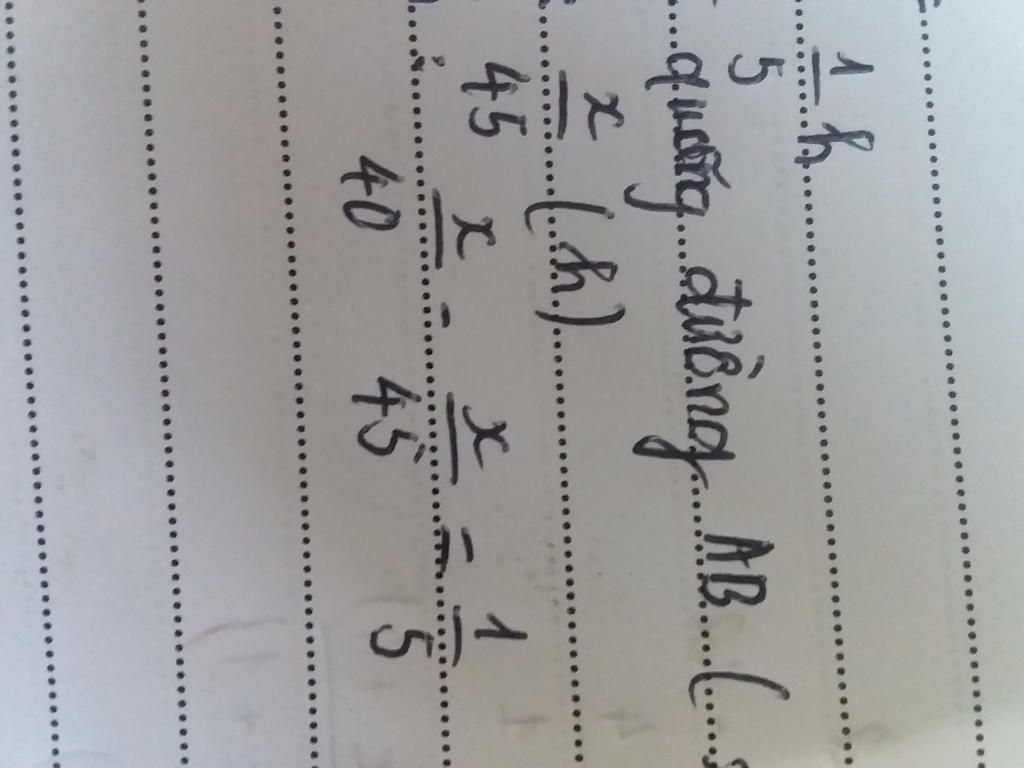 1/5 h
quãng đường AB (
x/45 (h)
x/40 - x/45 = 1/5